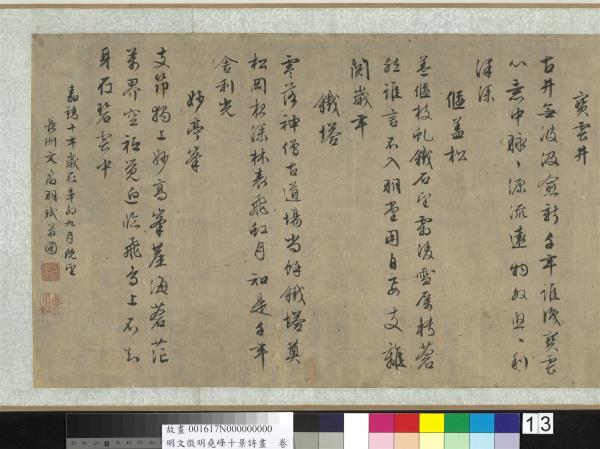 寶雲井
古井無波汲愈新千年誰浚寶雲
心意中脉〻源流遠物思〻利
澤深
偃蓋松
蓋偃枝虬鐵石堅霜凌雪壓轉蒼
然誰言不入明堂用自要支離
閱歲年
鐵塔
零落神僧古道場尚餘鐵塔奠
松岡夜深林表飛虹月知是千年
舍利光
妙高峯
支笻獨上妙高峯崖海蒼茫
萬界空祇覺迥臨飛鳥上不知
身在碧雲中
嘉靖十年歲在辛卯九月既望
長洲文徵明賦並圖
故畫 001617N000000000
明文徵明堯峰十景詩畫 卷
13